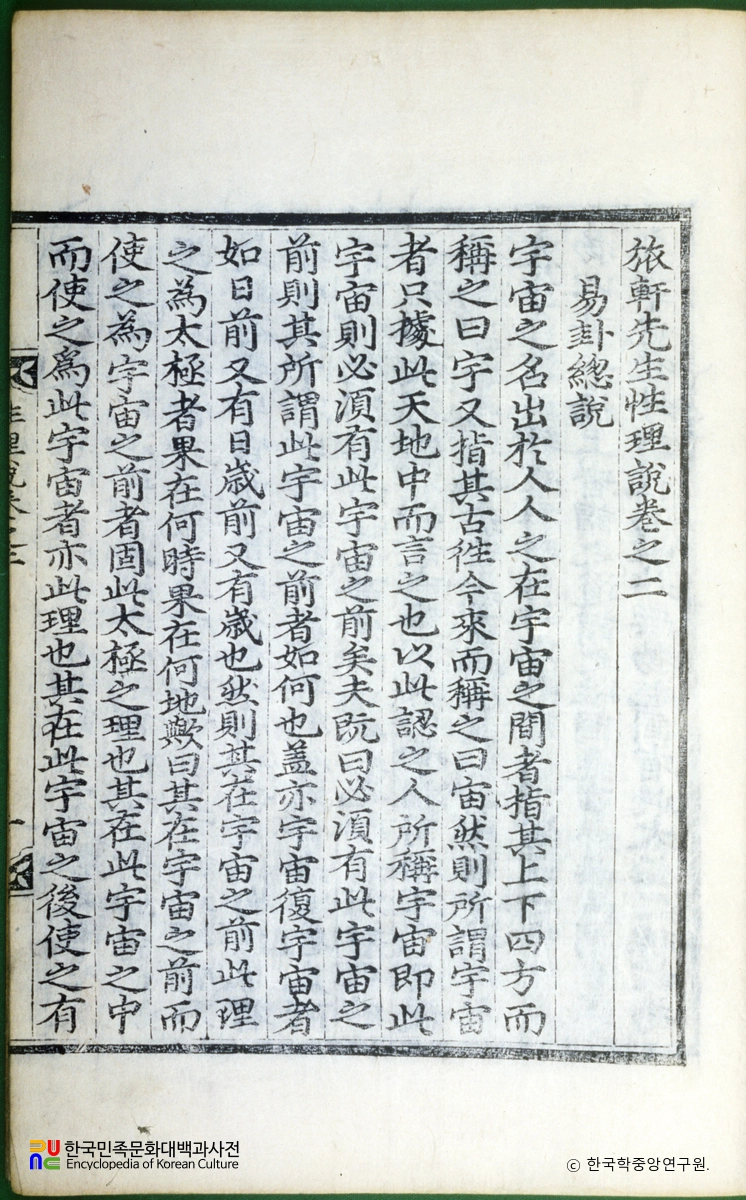 旅軒先生性理說卷之二
易卦總說
宇宙之名出於人人之在宇宙之間者指其上下四方而
稱之曰宇又指其古徃今來而稱之曰宙然則所謂宇宙
者只據此天地中而言之也以此認之人所稱宇宙即此
宇宙則必湏有此宇宙之前矣夫旣曰必湏有此宇宙之
前則其所謂此宇宙之前者如何也盖亦宇宙復宇宙者
如日前又有日歲前又有歲也然則其在宇宙之前此理
之為太極者果在何時果在何地歟曰其在宇宙之前而
使之為宇宙之前者固此太極之理也其在此宇宙之中
而使之爲此宇宙者亦此理也其在此宇宙之後使之有
한국민족문화대백과사전
Encyclopedia of Korean Culture
ⓒ 한국학중앙연구원.